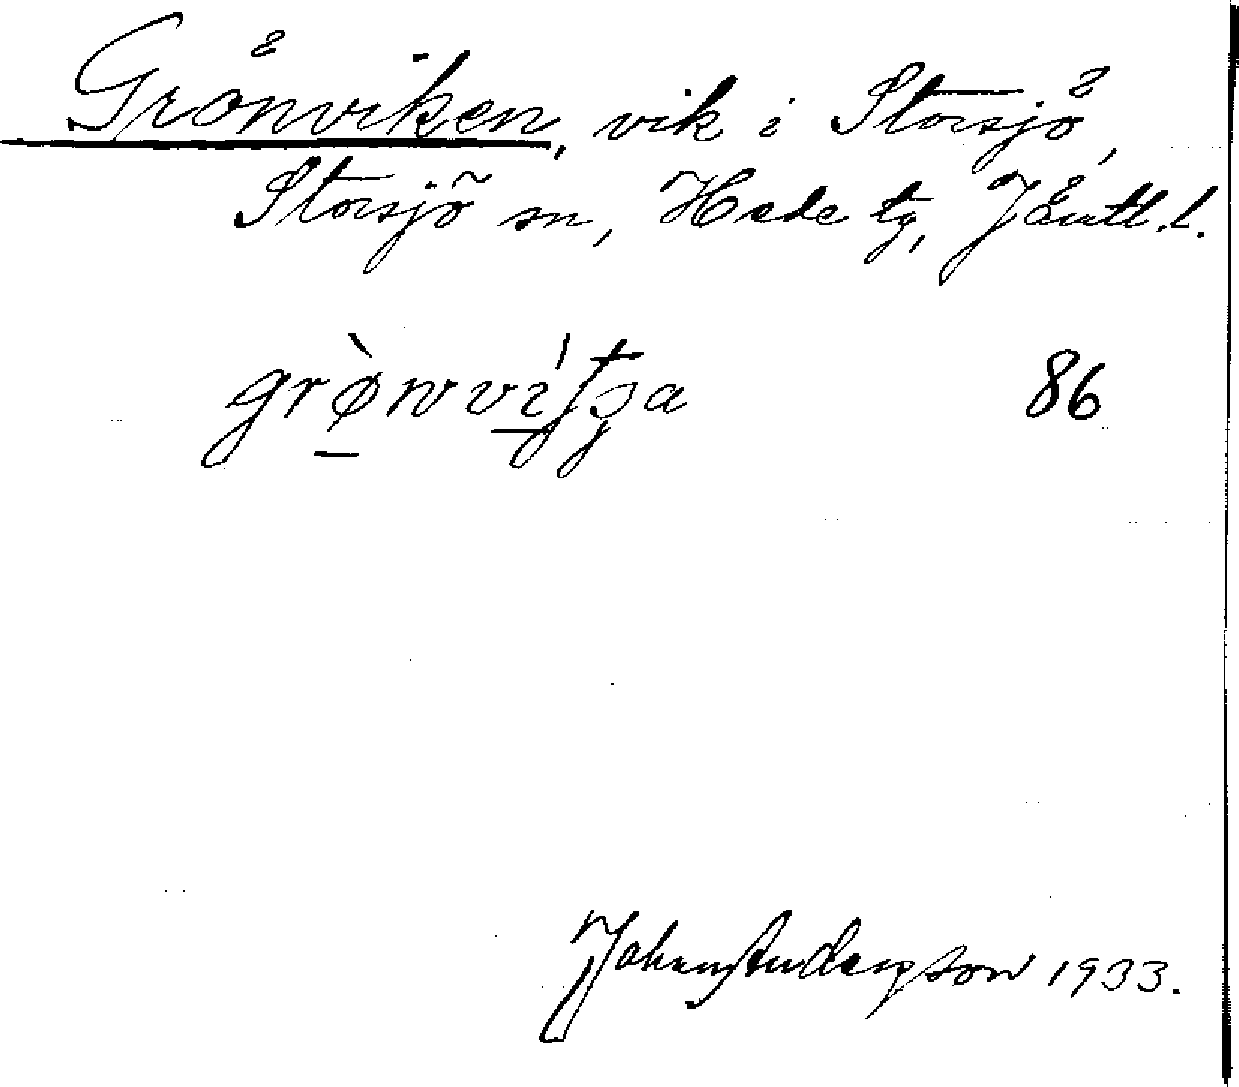 Grönviken, vik i Storsjö,
Storsjö sn, Hede tg, Jämtl. l.
86
Johan Anderson 1933.